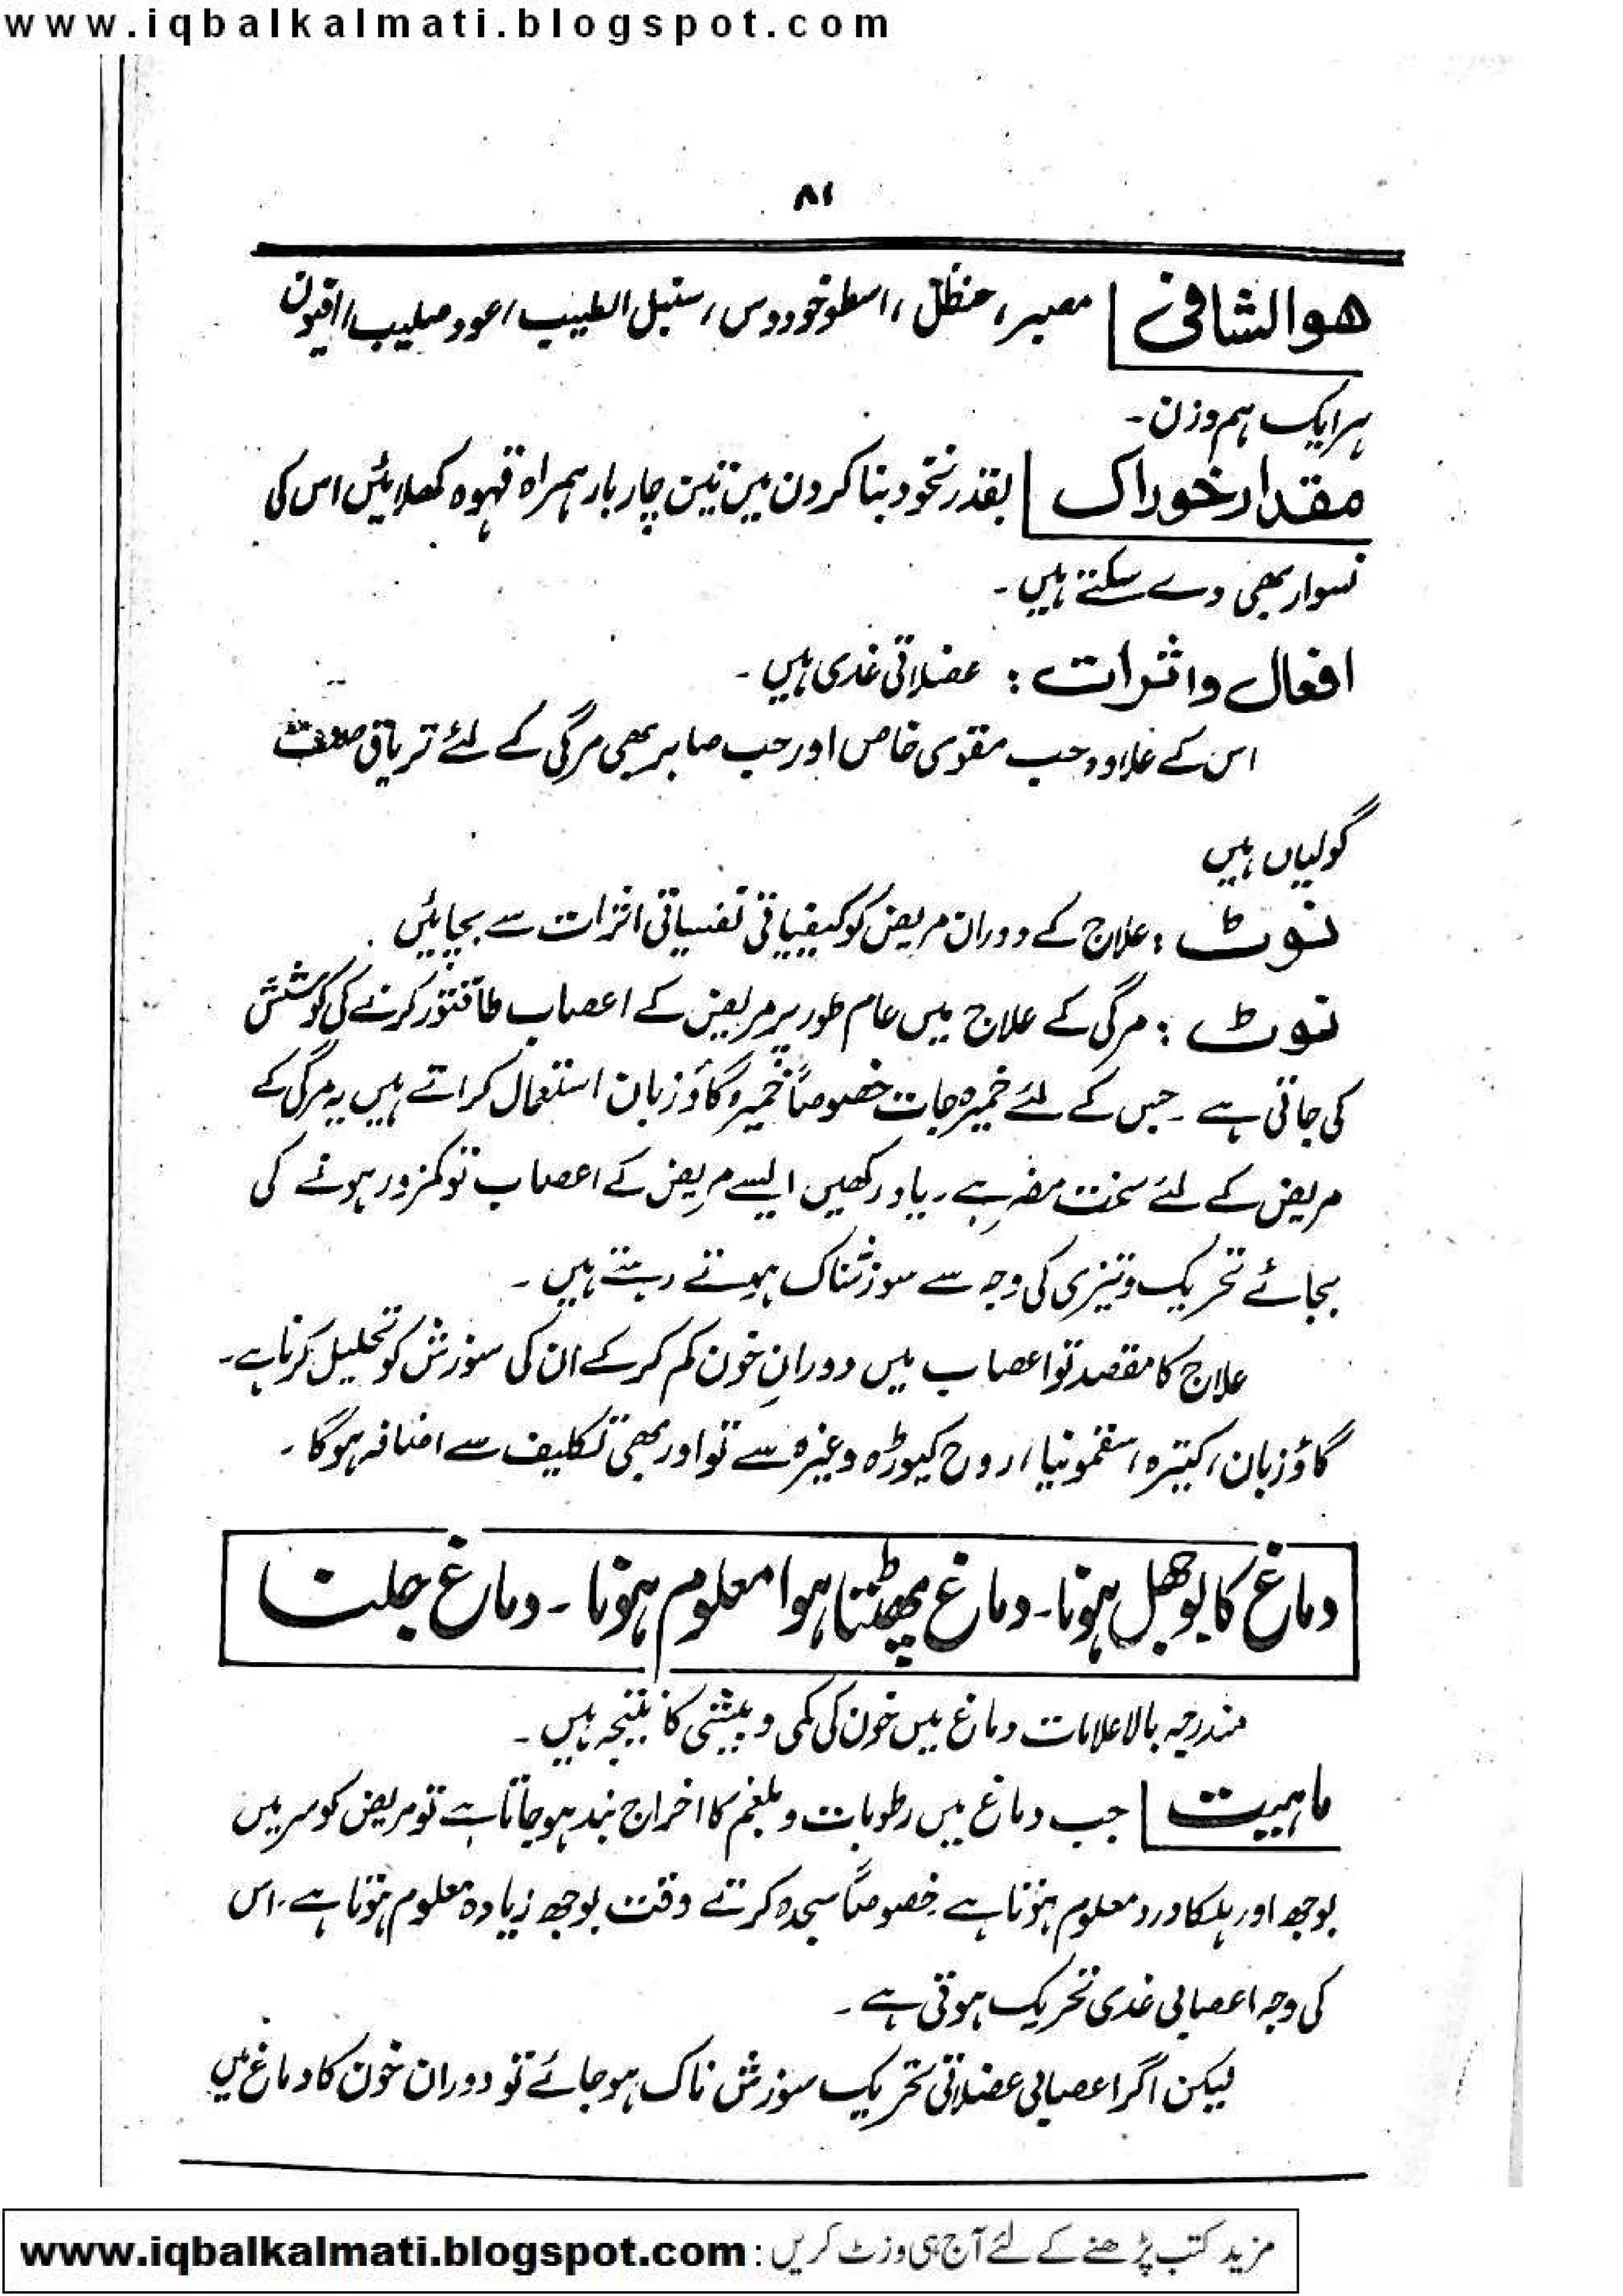 www.iqbalkalmati.blogspot.com
۸۱
ھوالشافی مصبر، حنظل، اسطوخودوس، سنبل الطیب، عود صلیب، افیون
ہر ایک ہم وزن۔
مقدار خوراک بقدر نخود بنا کر دن میں تین چار بار ہمراہ قہوہ کھلائیں اس کی
نسوار بھی دے سکتے ہیں۔
افعال و اثرات : عضلاتی غدی ہیں۔
اس کے علاوہ حب مقوی خاص اور حب صابر بھی مرگی کے لئے تریاق صفت
گولیاں ہیں
نوٹ : علاج کے دوران مریض کو کیفیاتی نفسیاتی اثرات سے بچائیں
نوٹ : مرگی کے علاج میں عام طور پر مریض کے اعصاب طاقتور کرنے کی کوشش
کی جاتی ہے۔ جس کے لئے خمیرہ جات خصوصاً خمیرہ گاؤزبان استعمال کراتے ہیں یہ مرگی کے
مریض کے لئے سخت مضر ہے۔ یاد رکھیں ایسے مریض کے اعصاب تو کمزور ہونے کی
بجائے تحریک و تیزی کی وجہ سے سوزشناک ہوتے رہتے ہیں۔
علاج کا مقصد تو اعصاب میں دورانِ خون کم کر کے ان کی سوزش کو تحلیل کرنا ہے۔
گاؤزبان، کتیرہ، سقمونیا، روح کیوڑہ وغیرہ سے تو اور بھی تکلیف سے اضافہ ہوگا۔
دماغ کا بوجھل ہونا۔ دماغ پھٹتا ہوا معلوم ہونا۔ دماغ جلنا
مندرجہ بالا علامات دماغ میں خون کی کمی و بیشی کا نتیجہ ہیں۔
ماہیت جب دماغ میں رطوبات و بلغم کا اخراج بند ہو جاتا ہے تو مریض کو سر میں
بوجھ اور ہلکا درد معلوم ہوتا ہے خصوصاً سجدہ کرتے وقت بوجھ زیادہ معلوم ہوتا ہے۔ اس
کی وجہ اعصابی غدی تحریک ہوتی ہے۔
لیکن اگر اعصابی عضلاتی تحریک سوزش ناک ہو جائے تو دوران خون کا دماغ میں
مزید کتب پڑھنے کے لئے آج ہی وزٹ کریں : www.iqbalkalmati.blogspot.com